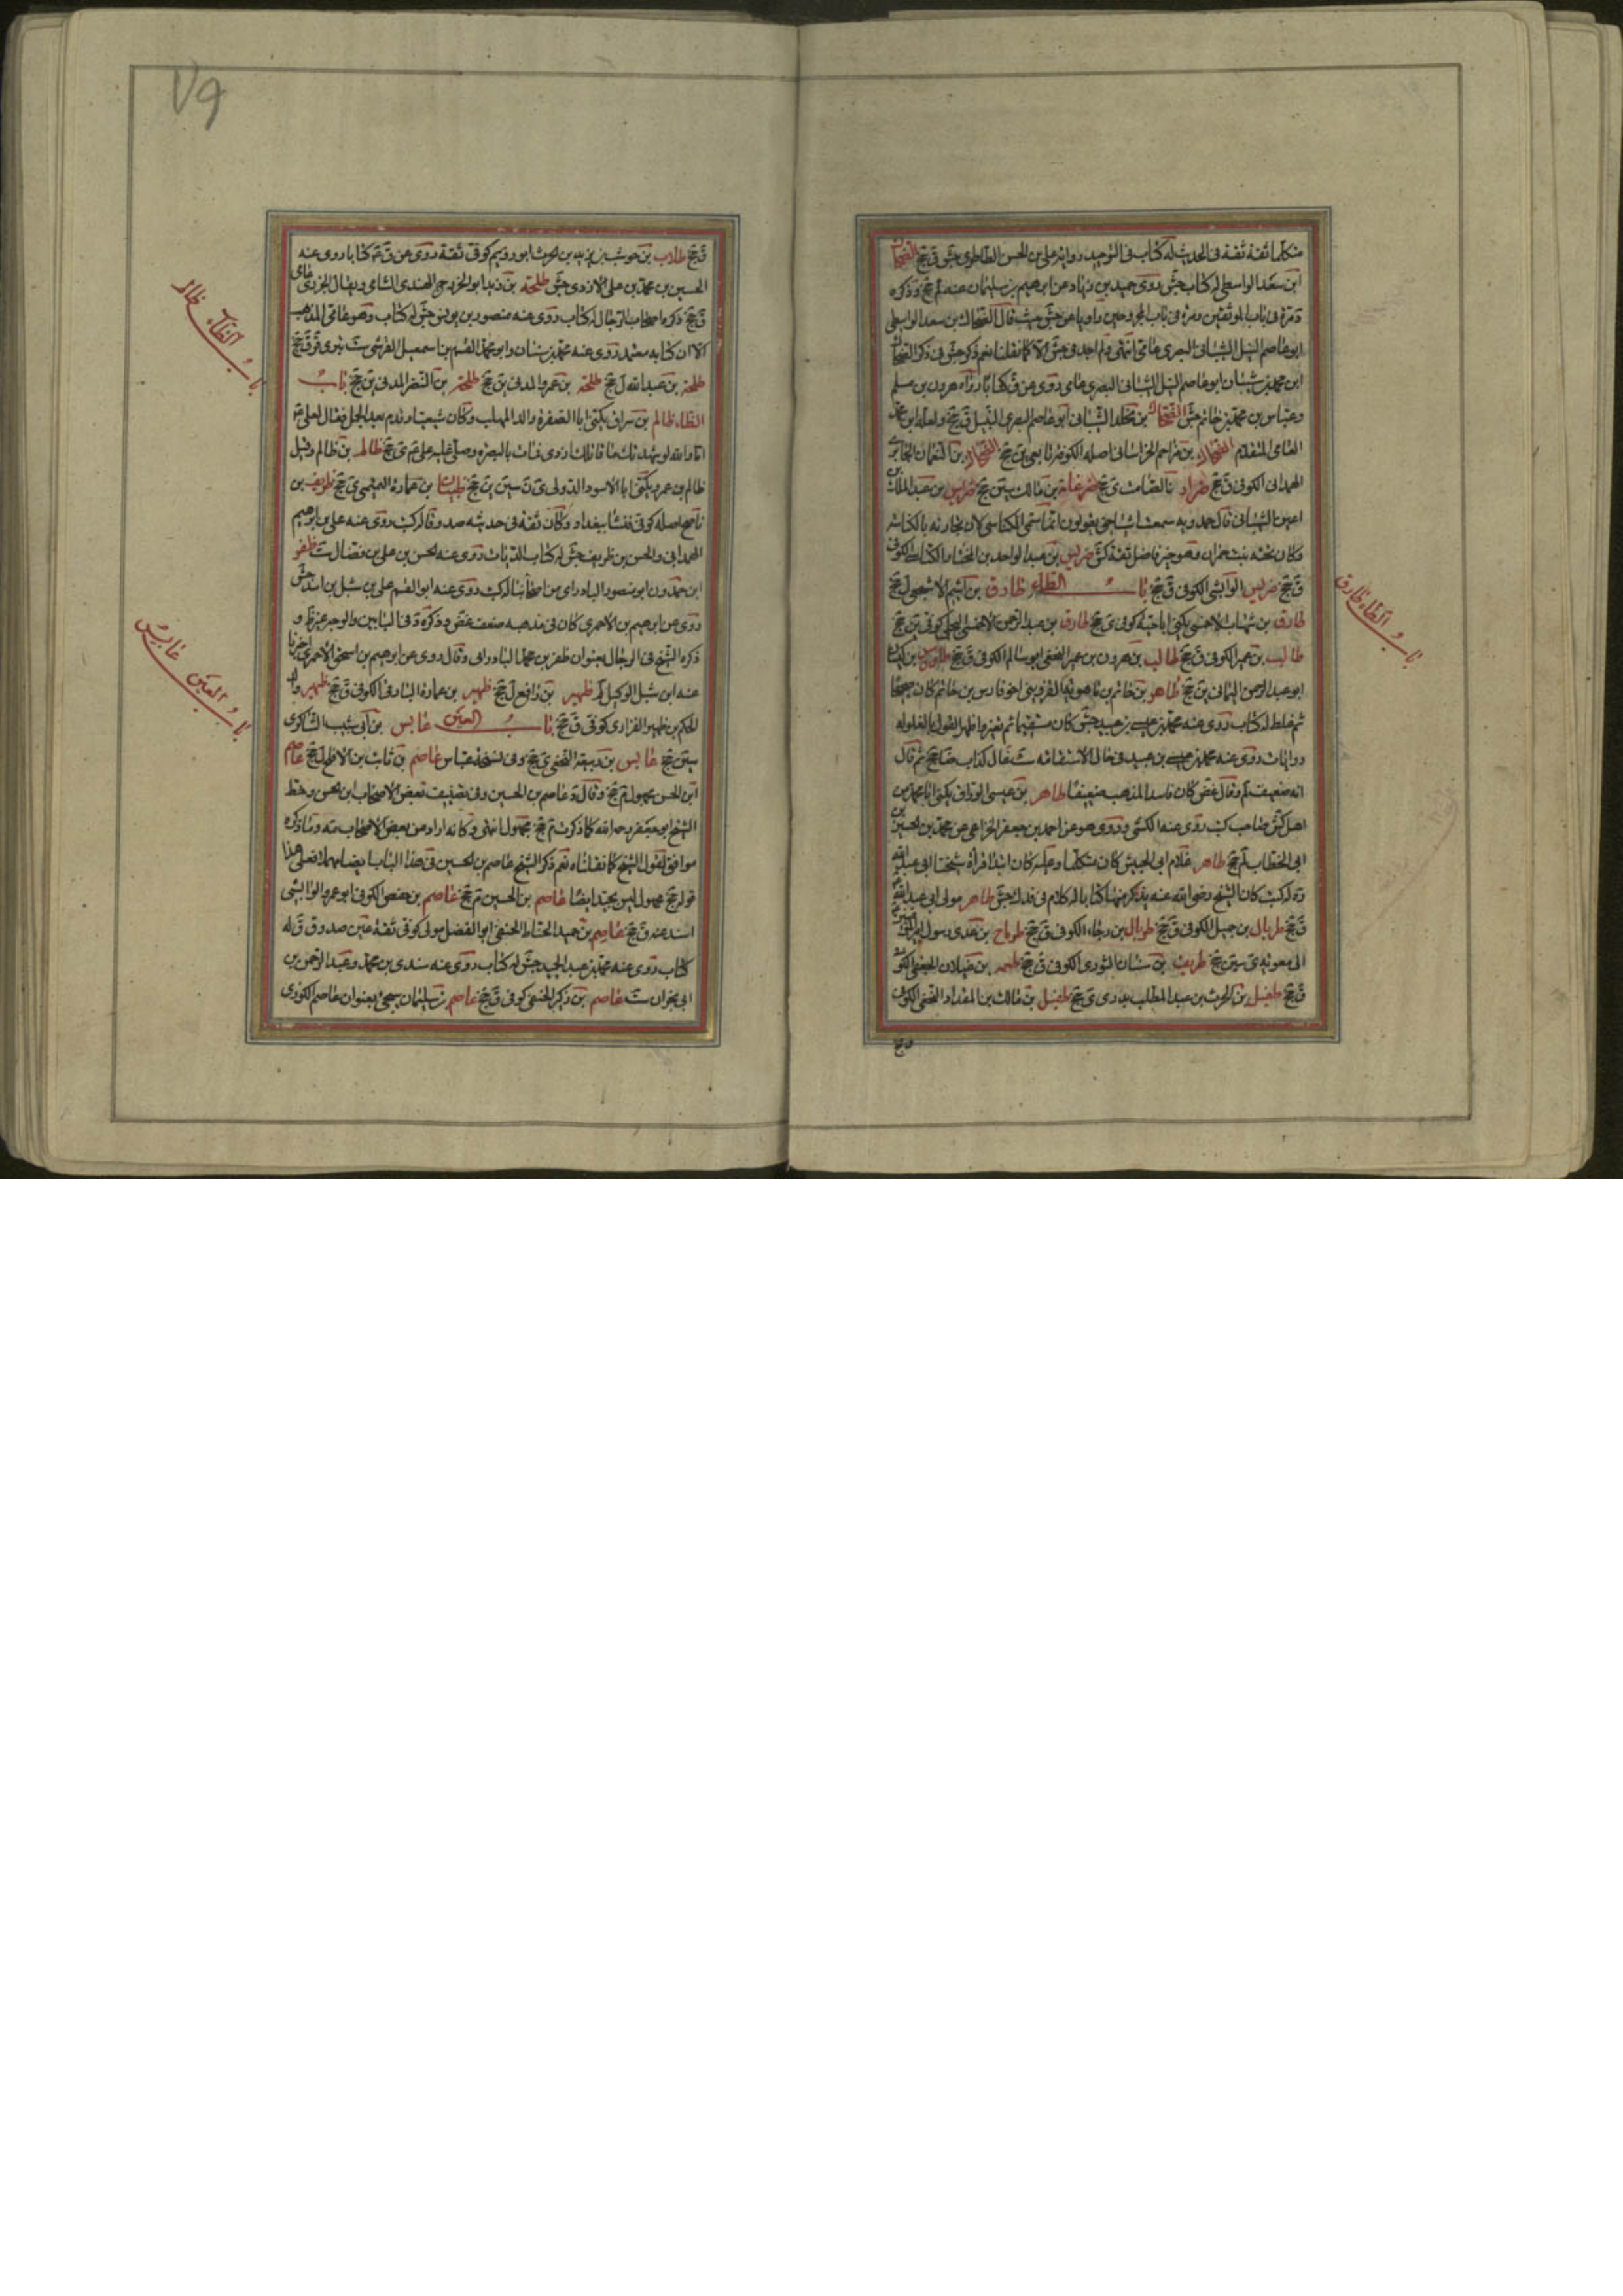 متكلما ثقة ثقة فى الحديث له كتاب فى التوحيد رواية على بن الحسن الطاطرى جش ق جخ الضحاك
ابن سعد الواسطى له كتاب جش روى حميد بن زياد عن ابرهيم بن سليمان عنه لم جخ وذكره
ابو عاصم النبيل الشيبانى البصرى عامى انتهى ولم اجد فى جش الا كما نقلنا نعم ذكر جش فى ذكر الضحاك
ابن محمد بن شيبان ابو عاصم النبيل الشيبانى البصرى عامى روى عن ق كتابا رواه هرون بن مسلم
وعباس بن محمد بن حاتم جش الضحاك بن مخلد الشيبانى ابو عاصم البصرى النبيل ق جخ ولعله ابن محمد
العامى المتقدم الضحاك بن مزاحم الخراسانى اصله الكوفة تابعى ين جخ الضحاك بن النعمان
الهمدانى الكوفى ق جخ ضرار بن الصامت ى جخ ضرغامة بن مالك سين جخ ضريس بن عبد الملك بن
اعين الشيبانى قال حمدويه سمعت اشياخى يقولون انما سمى الكناسى لان تجارته بالكناسة
وكان تحته بنت حمران وهو خير فاضل ثقة كش ضريس بن عبد الواحد بن المختار الكوفى
ق جخ ضريس الوابشى الكوفى ق جخ باب الطاء طارق بن اشيم الاشجعى ل جخ
طارق بن شهاب الاحمسى يكنى ابا حية كوفى ى جخ طارق بن عبد الرحمن الاحمسى البجلى كوفى ين جخ
طالب بن عمير الكوفى ق جخ طالب بن هرون بن عمير النخعى ابو سالم الكوفى ق جخ طاووس بن كيسان
ابو عبد الرحمن اليمانى ين جخ طاهر بن حاتم بن ماهويه القزوينى اخو فارس بن حاتم كان صحيحا
ثم خلط له كتاب روى عنه محمد بن عيسى بن عبيد جش كان مستقيما ثم تغير واظهر القول بالغلو له
روايات روى عنه محمد بن عيسى بن عبيد فى حال الاستقامة ست غال كذاب ضا جخ ثم قال
انه ضعيف لم وقال غض كان فاسد المذهب ضعيفا طاهر بن عيسى الوراق يكنى ابا محمد من
اهل كش صاحب كتب روى عنه الكشى وروى هو عن احمد بن جعفر الخزاعى عن محمد بن الحسين بن
ابى الخطاب لم جخ طاهر غلام ابى الجيش كان متكلما وعليه كان ابتدا قراة شيخنا ابى عبد الله
ق جخ طربال بن جميل الكوفى ق جخ طربال بن رجاء الكوفى ق جخ طرماح بن عدى رسول
الى معوية ى سين جخ طريف بن سنان الثورى الكوفى ق جخ طعمه بن غيلان الجعفى الكوفى
ق جخ طفيل بن الحرث بن عبد المطلب بدرى ى جخ طفيل بن مالك بن المقداد النخعى الكوفى
باب الطاء طارق
٧٩
ق جخ طلاب بن حوشب بن يزيد بن الحرث ابو رويم كوفى ثقة روى عن ق ع كتابا روى عنه
الحسين بن محمد بن على الازدى جش طلحة بن زيد ابو الخزرج النهدى الشامى ويقال الخزرى عامى
ق جخ ذكره اصحاب الرجال له كتاب روى عنه منصور بن يونس جش له كتاب وهو عامى المذهب
الا ان كتابه معتمد روى عنه محمد بن سنان وابو محمد القسم بن اسمعيل القرشى ست بترى قر ق جخ
طلحة بن عبد الله ل جخ طلحة بن عمرو المدنى ين جخ طلحة بن النضر المدنى ين جخ باب
الظاء ظالم بن سراق يكنى ابا الصفرة والد المهلب وكان شيعيا وقدم بعد الجمل فقال لعلى ع
اما والله لو شهدتك ما قاتلك ازدى فمات بالبصرة وصلى عليه على ع ى جخ ظالم بن ظالم وقيل
ظالم بن عمرو يكنى ابا الاسود الدولى ى ن سين ين جخ ظبيان بن عمارة التميمى ى جخ ظريف بن
ناصح اصله كوفى نشا ببغداد وكان ثقة فى حديثه صدوقا له كتب روى عنه على بن ابرهيم
الهمدانى والحسن بن ظريف جش له كتاب الديات روى عنه الحسن بن على بن فضال ست ظفر
ابن حمدون ابو منصور البادراى من اصحابنا له كتب روى عنه ابو القسم على بن شبل بن اسد جش
روى عن ابرهيم بن الاحمرى كان فى مذهبه ضعف غض وذكره د فى البابين
ذكره الشيخ فى الرجال بعنوان ظفر بن محمد البادرائى وقال روى عن ابرهيم بن اسحق الاحمرى اخبرنا
عنه ابن شبل الوكيل لم ظهير بن رافع ل جخ ظهير بن عمارة البارقى الكوفى ق جخ ظهير والد
الحكم بن ظهير الفزارى كوفى ق جخ باب العين عابس بن ابى شبيب الشاكرى
سين جخ عابس بن ربيعة النخعى ى جخ وفى نسخة عباس عاصم بن ثابت بن الافلح ل جخ عاصم
ابن الحسن مجهول م جخ وقال د عاصم بن الحسين وفى تصنيف بعض الاصحاب ابن الحسن وخط
الشيخ ابو جعفر رحمه الله كما ذكرت م جخ مجهول انتهى وكانه اراد من بعض الاصحاب مه وما ذكره
موافق لقول الشيخ كما نقلناه نعم ذكر الشيخ عاصم بن الحسين فى هذا الباب ايضا مهملا فعلى هذا
قوله جخ مجهول ليس بجيد ايضا عاصم بن الحسين م جخ عاصم بن حفص الكوفى ابو عمرو الوابشى
اسند عنه ق جخ عاصم بن حميد الحناط الحنفى ابو الفضل مولى كوفى ثقة عين صدوق ق له
كتاب روى عنه محمد بن عبد الحميد جش له كتاب روى عنه سندى بن محمد وعبد الرحمن بن
ابى نجران ست عاصم بن زكير الحنفى كوفى ق جخ عاصم بن سليمان يجئ بعنوان عاصم الكوزى
باب الظاء ظالم
باب العين عابس